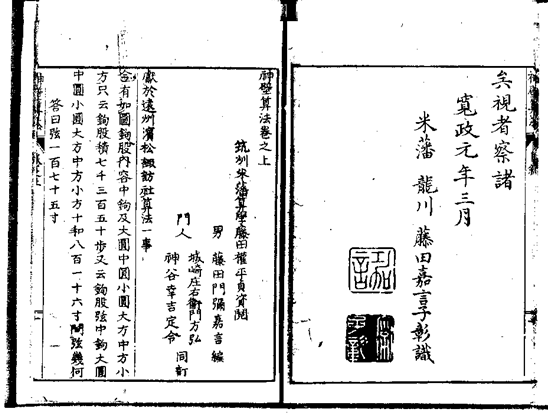 矣視者察諸
寛政元年三月
米藩 龍川 藤田嘉言子彰識
嘉言
神壁算法巻之上
筑州米藩算學藤田權平貞資閲
男 藤田門彌嘉言 編
門人
城崎庄右衞門方弘
神谷幸吉定令
同訂
獻於遠州濱松諏訪社算法一事
今有如圖鉤股内容中鉤及大圓中圓小圓大方中方小
方只云鉤股積七千三百五十歩又云鉤股弦中鉤大圓
中圓小圓大方中方小方十和八百一十六寸問弦幾何
答曰弦一百七十五寸
一